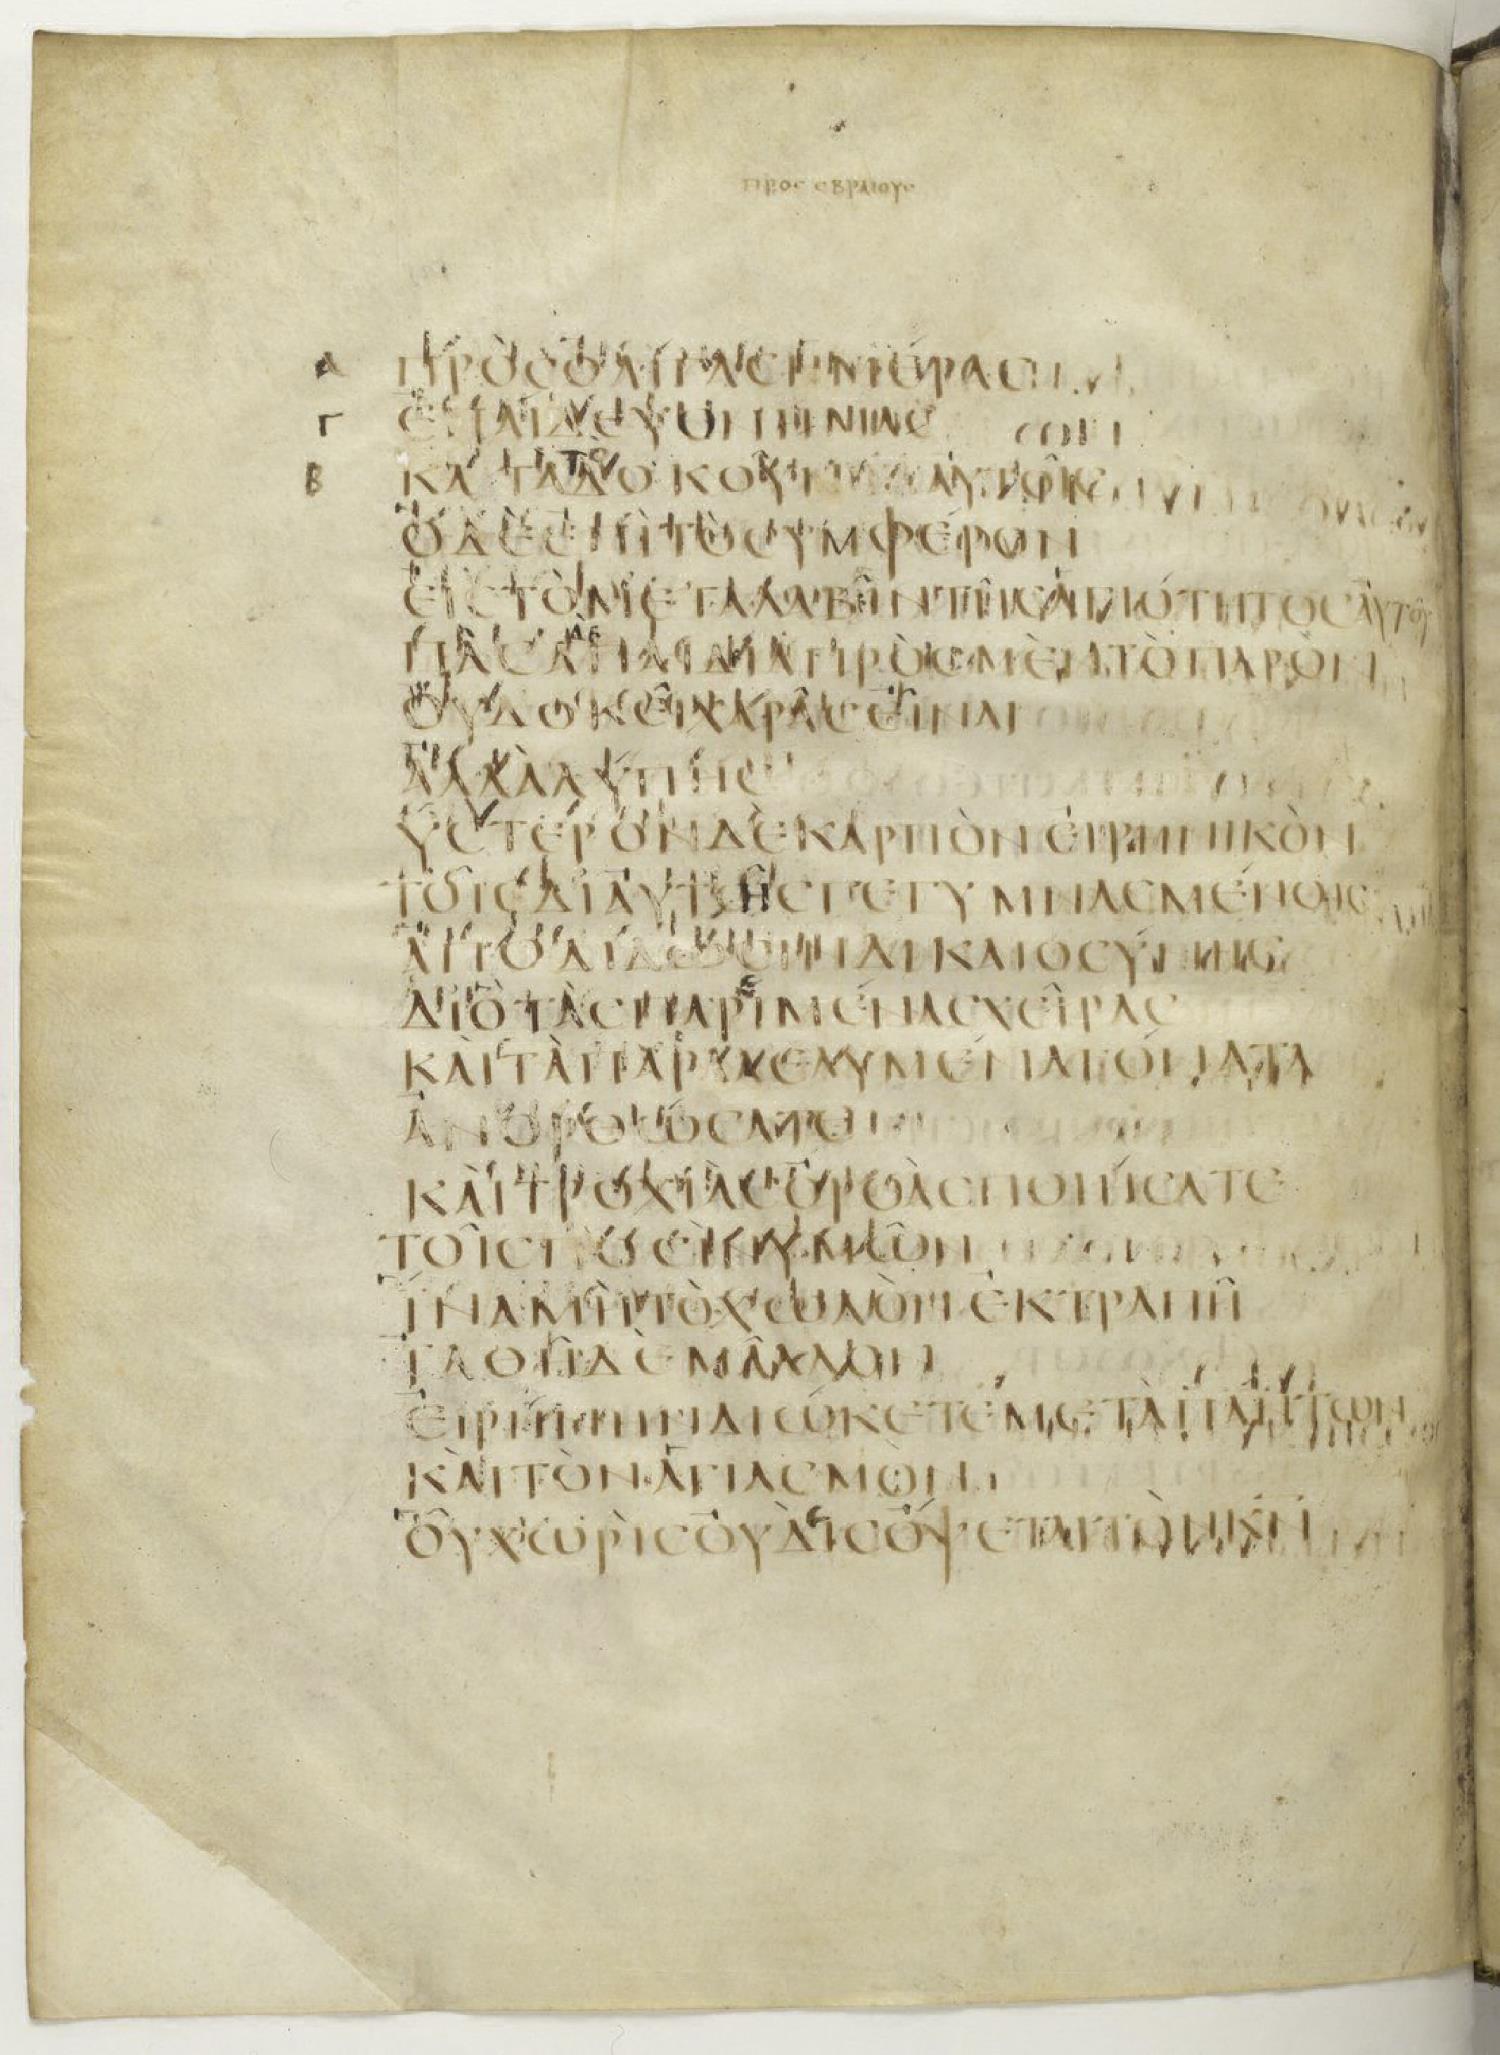 ΠΡΟϹ ΕΒΡΑΙΟΥϹ
Α ΠΡΟϹΟΛΙΓΑϹΗΜΕΡΑϹ
Γ ΕΠΑΙΔΕΥΟΝΗΜΑϹ
Β ΚΑΤΑΤΟΔΟΚΟΥΝΑΥΤΟΙϹ
ΟΔΕΕΠΙΤΟϹΥΜΦΕΡΟΝ
ΕΙϹΤΟΜΕΤΑΛΑΒΙΝΤΗϹΑΓΙΟΤΗΤΟϹΑΥΤΟΥ
ΠΑϹΑΔΕΠΑΙΔΙΑΠΡΟϹΜΕΝΤΟΠΑΡΟΝ
ΟΥΔΟΚΕΙΧΑΡΑϹΕΙΝΑΙ
ΑΛΛΑΛΥΠΗϹ
ΥϹΤΕΡΟΝΔΕΚΑΡΠΟΝΕΙΡΗΝΙΚΟΝ
ΤΟΙϹΔΙΑΥΤΗϹΓΕΓΥΜΝΑϹΜΕΝΟΙϹ
ΑΠΟΔΙΔΩϹΙΝΔΙΚΑΙΟϹΥΝΗϹ
ΔΙΟΤΑϹΠΑΡΕΙΜΕΝΑϹΧΕΙΡΑϹ
ΚΑΙΤΑΠΑΡΑΛΕΛΥΜΕΝΑΓΟΝΑΤΑ
ΑΝΟΡΘΩϹΑΤΕ
ΚΑΙΤΡΟΧΙΑϹΟΡΘΑϹΠΟΙΗϹΑΤΕ
ΤΟΙϹΠΟϹΙΝΥΜΩΝ
ΙΝΑΜΗΤΟΧΩΛΟΝΕΚΤΡΑΠΗ
ΙΑΘΗΔΕΜΑΛΛΟΝ
ΕΙΡΗΝΗΝΔΙΩΚΕΤΕΜΕΤΑΠΑΝΤΩΝ
ΚΑΙΤΟΝΑΓΙΑϹΜΟΝ
ΟΥΧΩΡΙϹΟΥΔΕΙϹΟΨΕΤΑΙΤΟΝΚΝ